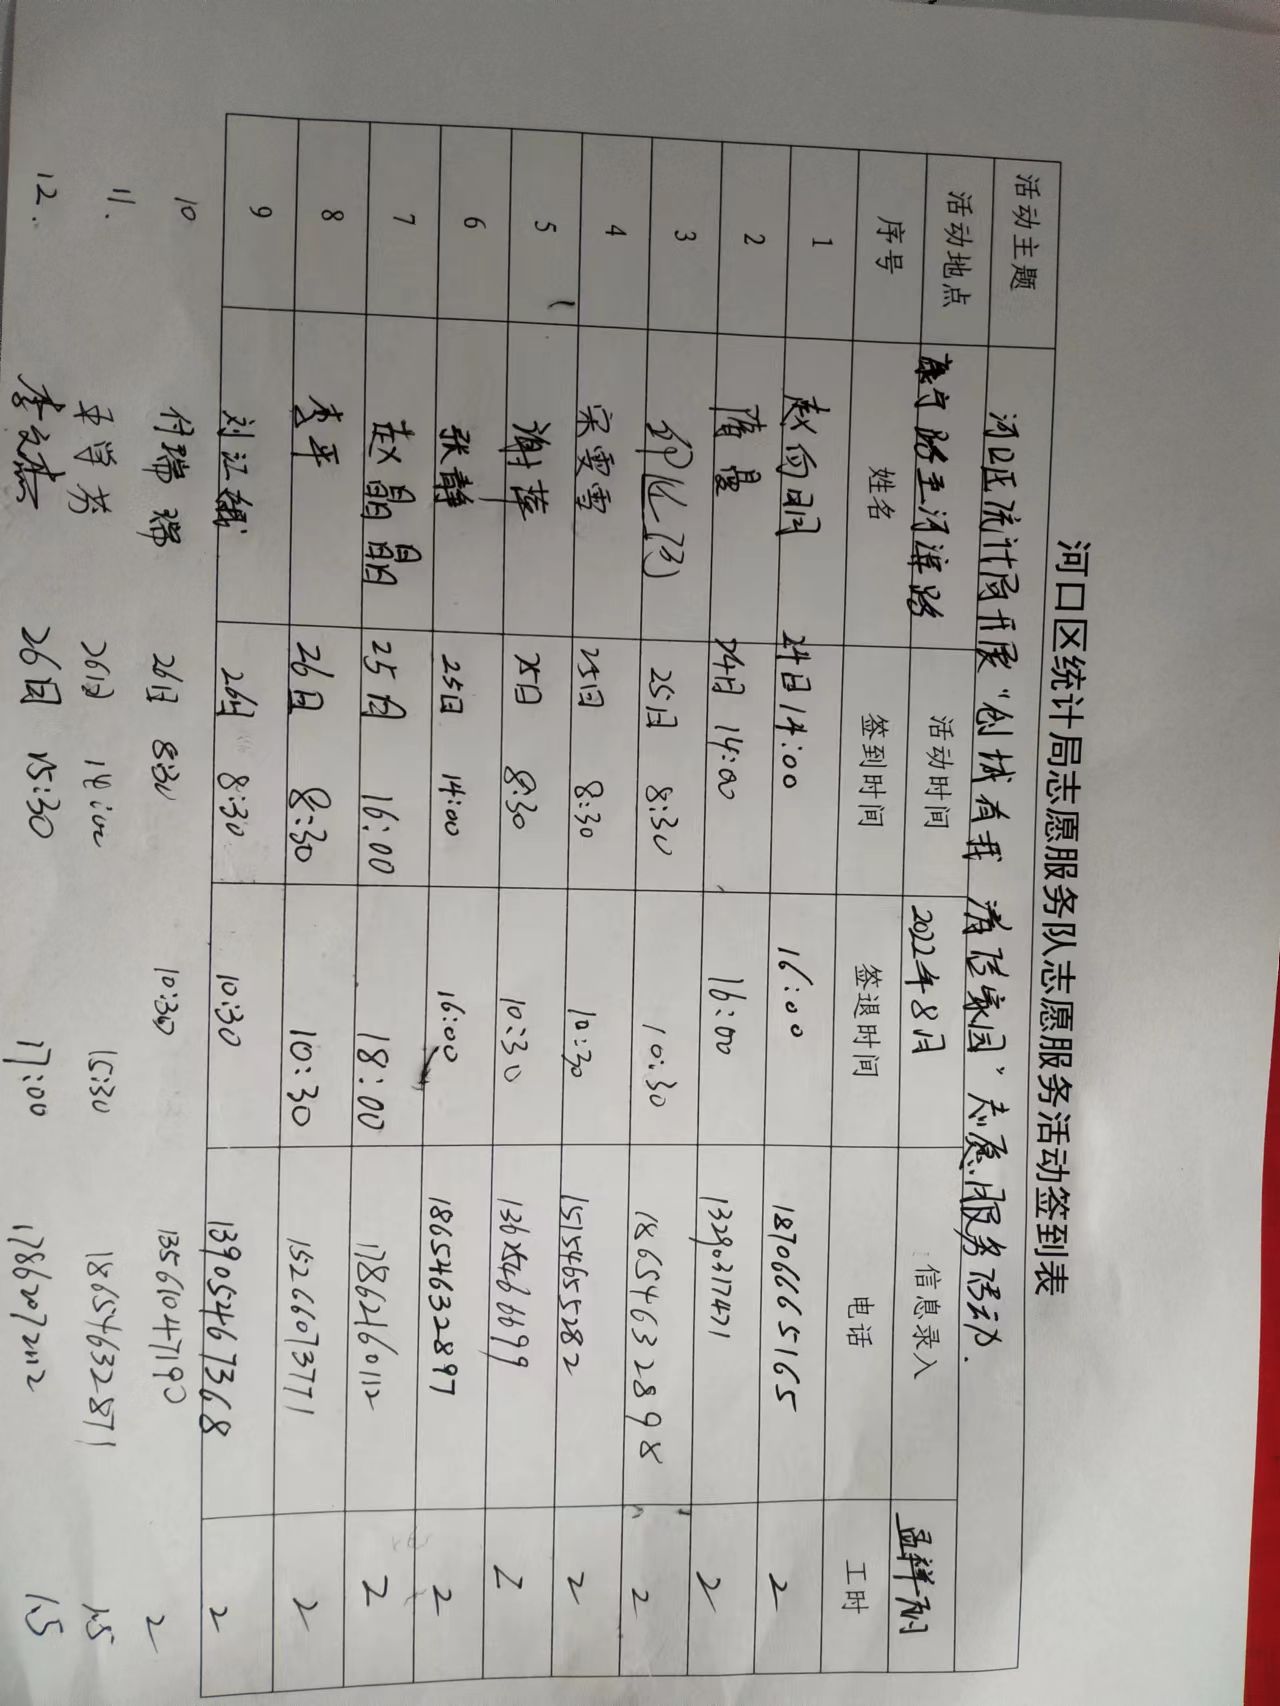 河口区统计局志愿服务队志愿服务活动签到表
活动主题 河口区统计局开展“创城有我 清洁家园”志愿服务活动.
活动地点 康宁路至河滨路 活动时间 2022年8月 信息录入
序号 姓名 签到时间 签退时间 电话 工时
1 赵向阳 24日 14:00 16:00 18706665165 2
2 隋曼 24日 14:00 16:00 13290317471 2
3 25日 8:30 10:30 18654632898 2
4 宋雯雪 25日 8:30 10:30 15154655282 2
5 谢萍 25日 8:30 10:30 13625466699 2
6 张静 25日 14:00 16:00 18654632897 2
7 赵晶晶 25日 16:00 18:00 17862160112 2
8 李平 26日 8:30 10:30 15266073771 2
9 刘江 26日 8:30 10:30 13905467368 2
10 付瑞瑞 26日 8:30 10:30 13561047190 2
11. 26日 14:00 15:30 18654632871 1.5
12. 李文杰 26日 15:30 17:00 1.5